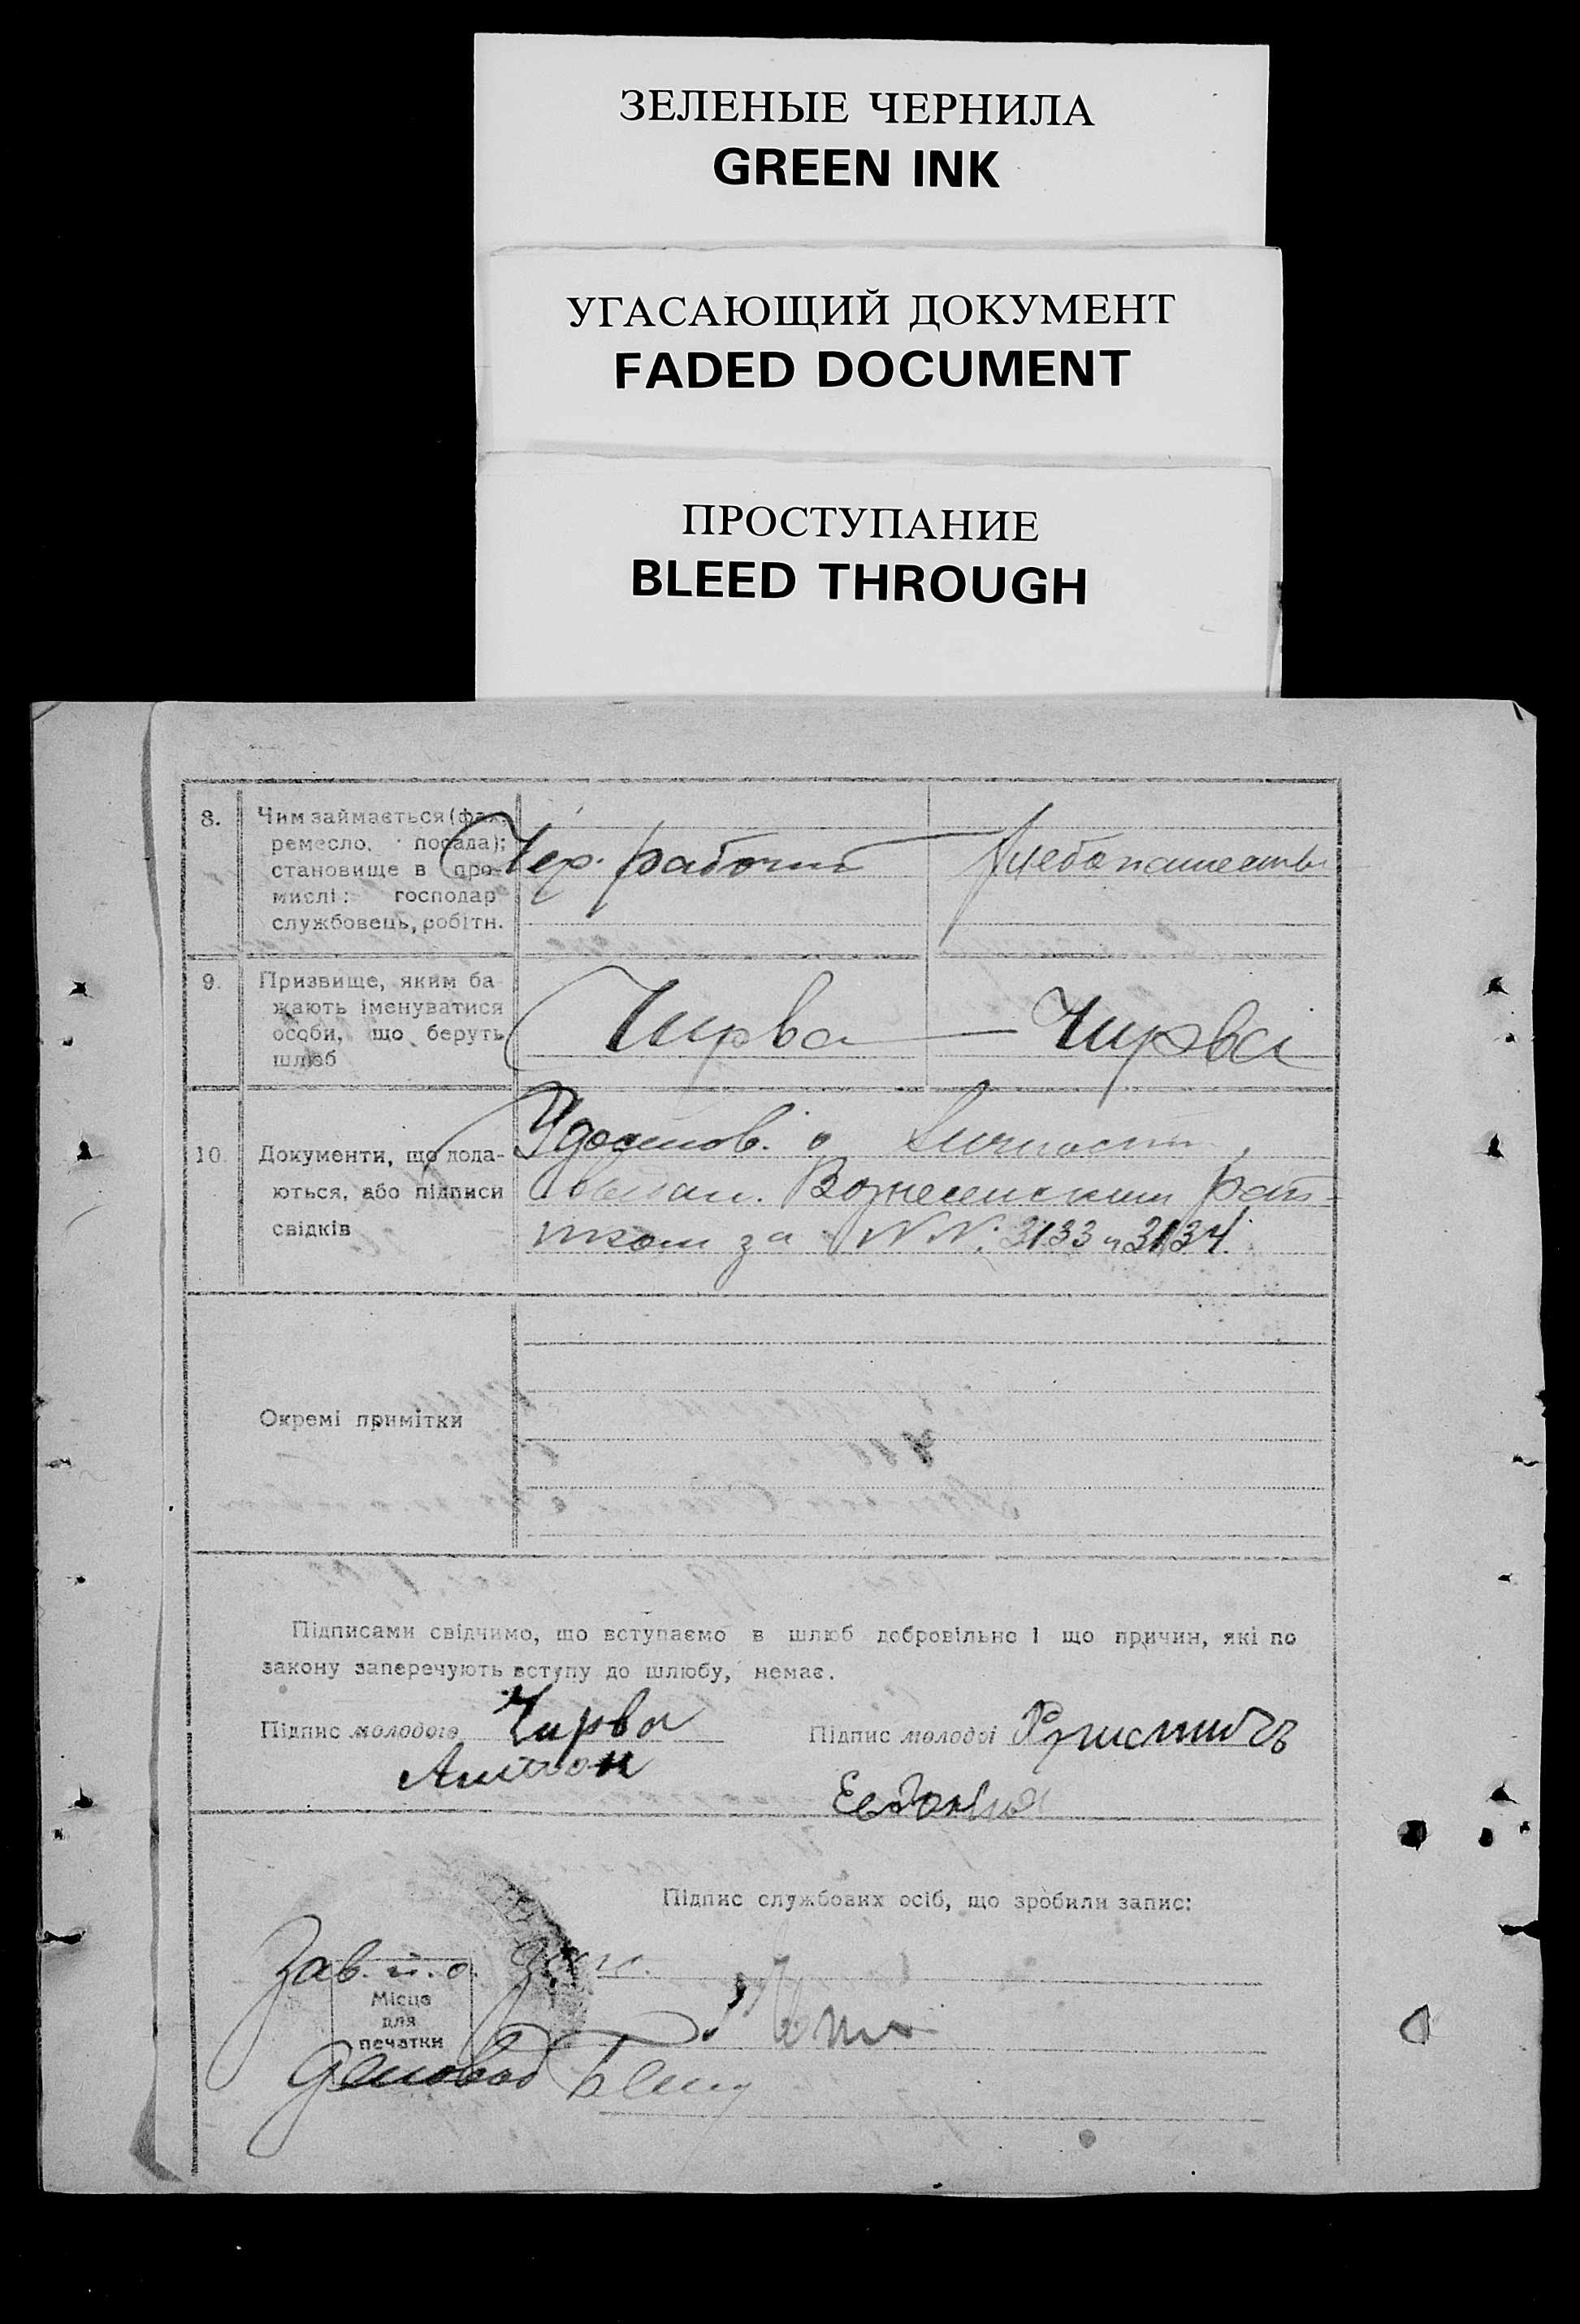 ЗЕЛЕНЫЕ ЧЕРНИЛА
GREEN INK
УГАСАЮЩИЙ ДОКУМЕНТ
FADED DOCUMENT
ПРОСТУПАНИЕ
BLEED THROUGH
8. Чим займається (фах,
ремесло, посада);
становище в про-
мислі: господар
службовець, робітн.
Чер. рабочий
Хлебопашество
9. Призвище, яким ба-
жають іменуватися
особи, що беруть
шлюб
Чирва — Чирва
10. Документи, що дода-
ються, або підписи
свідків
Удостов. о личности,
Вознесенским рай-
иком за N N. 3133 и 3134.
Окремі примітки
Підписами свідчимо, що вступаємо в шлюб добровільно і що причин, які по
закону заперечують вступу до шлюбу, немає.
Підпис молодого Чирва
Антон
Підпис молодої
Евдокия
Підпис службових осіб, що зробили запис:
Зав.
Місце
для
печатки
Діловод